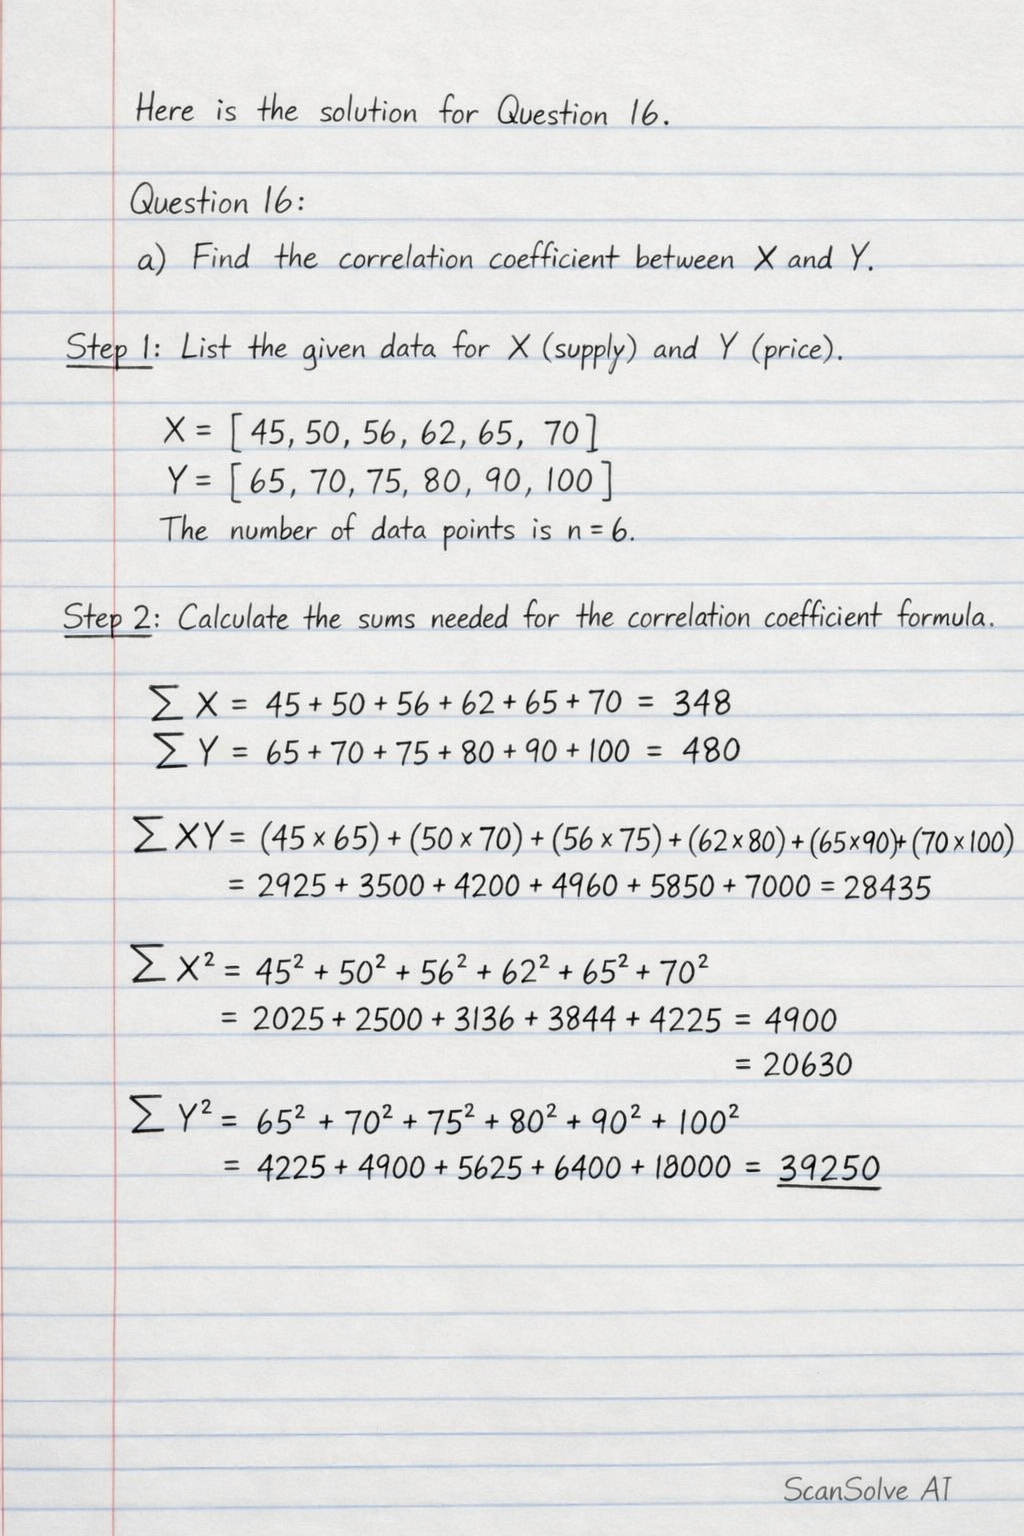 Here is the solution for Question 16.
Question 16:
a) Find the correlation coefficient between X and Y.
Step 1: List the given data for X (supply) and Y (price).
X = [45, 50, 56, 62, 65, 70]
Y = [65, 70, 75, 80, 90, 100]
The number of data points is n = 6.
Step 2: Calculate the sums needed for the correlation coefficient formula.
∑ X = 45 + 50 + 56 + 62 + 65 + 70 = 348
∑ Y = 65 + 70 + 75 + 80 + 90 + 100 = 480
∑ XY = (45 × 65) + (50 × 70) + (56 × 75) + (62 × 80) + (65 × 90) + (70 × 100)
= 2925 + 3500 + 4200 + 4960 + 5850 + 7000 = 28435
∑ X² = 45² + 50² + 56² + 62² + 65² + 70²
= 2025 + 2500 + 3136 + 3844 + 4225 = 4900
= 20630
∑ Y² = 65² + 70² + 75² + 80² + 90² + 100²
= 4225 + 4900 + 5625 + 6400 + 18000 = 39250
ScanSolve AI